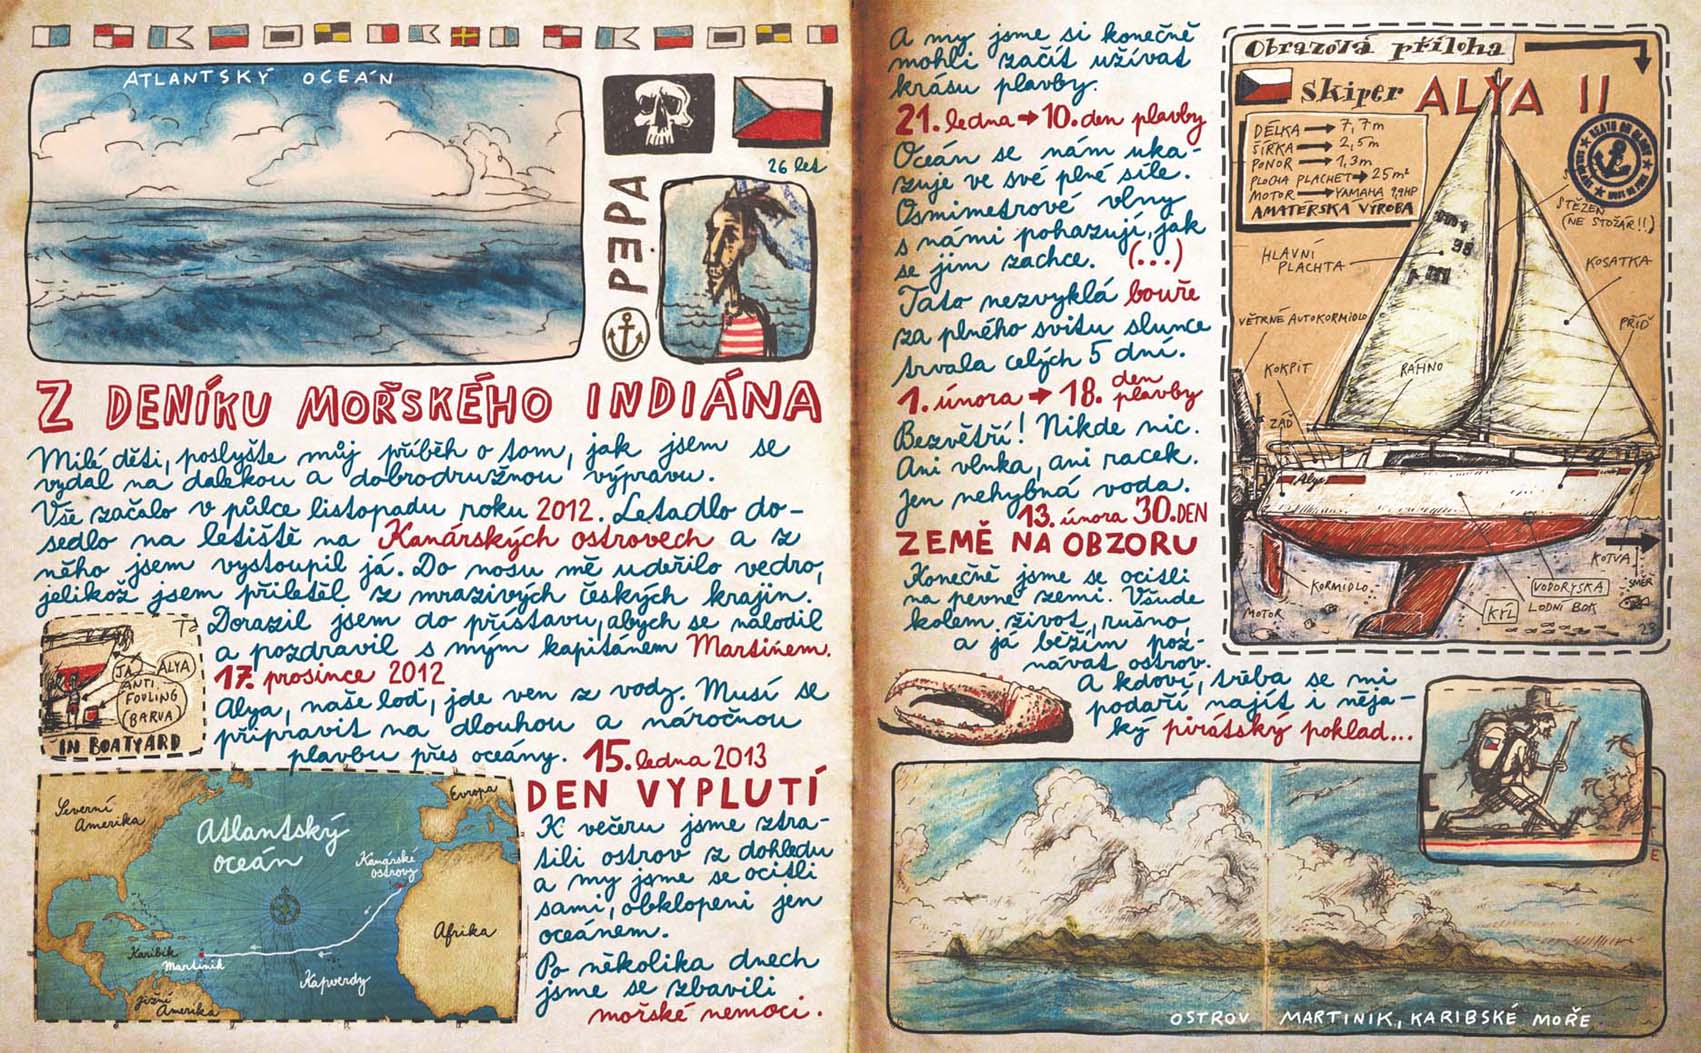 ATLANTSKÝ OCEÁN
26 let
PEPA
Z DENÍKU MOŘSKÉHO INDIÁNA
Milé děti, poslyšte můj příběh o tom, jak jsem se
vydal na dalekou a dobrodružnou výpravu.
Vše začalo v půlce listopadu roku 2012. Letadlo do-
sedlo na letiště na Kanárských ostrovech a z
něho jsem vystoupil já. Do nosu mě udeřilo vedro,
jelikož jsem přiletěl z mrazivých českých krajin.
Dorazil jsem do přístavu, abych se nalodil
a pozdravil s mým kapitánem Martinem.
17. prosince 2012
Alya, naše loď, jde ven z vody. Musí se
připravit na dlouhou a náročnou
plavbu přes oceány.
JÁ
ALYA
ANTI
FOULING
(BARVA)
IN BOATYARD
15. ledna 2013
DEN VYPLUTÍ
K večeru jsme ztra-
tili ostrov z dohledu
a my jsme se ocitli
sami, obklopeni jen
oceánem.
Po několika dnech
jsme se zbavili
mořské nemoci.
Severní
Amerika
Atlantský
oceán
Evropa
Kanárské
ostrovy
Afrika
Karibik
Martinik
Kapverdy
Jižní
Amerika
A my jsme si konečně
mohli začít užívat
krásu plavby.
21. ledna → 10. den plavby
Oceán se nám uka-
zuje ve své plné síle.
Osmimetrové vlny
s námi pohazují, jak
se jim zachce. (...)
Tato nezvyklá bouře
za plného svitu slunce
trvala celých 5 dní.
1. února → 18. den
plavby
Bezvětří! Nikde nic.
Ani vlnka, ani racek.
Jen nehybná voda.
13. února 30. DEN
ZEMĚ NA OBZORU
Konečně jsme se ocitli
na pevné zemi. Všude
kolem život, rušno,
a já běžím poz-
návat ostrov.
A kdoví, třeba se mi
podaří najít i něja-
ký pirátský poklad...
Obrazová příloha
Skiper ALYA II
DÉLKA → 7,7m
ŠÍŘKA → 2,5m
PONOR → 1,3m
PLOCHA PLACHET → 25m²
MOTOR → YAMAHA 9,9HP
AMATÉRSKÁ VÝROBA
STĚŽEŇ
(NE STOŽÁR!!)
HLAVNÍ
PLACHTA
KOSATKA
VĚTRNÉ AUTOKORMIDLO
PŘÍĎ
KOKPIT
RÁHNO
ZÁĎ
Alya
KOTVA
KORMIDLO
VODORYSKA
SMĚR
MOTOR
KÝL
LODNÍ BOK
23
OSTROV MARTINIK, KARIBSKÉ MOŘE